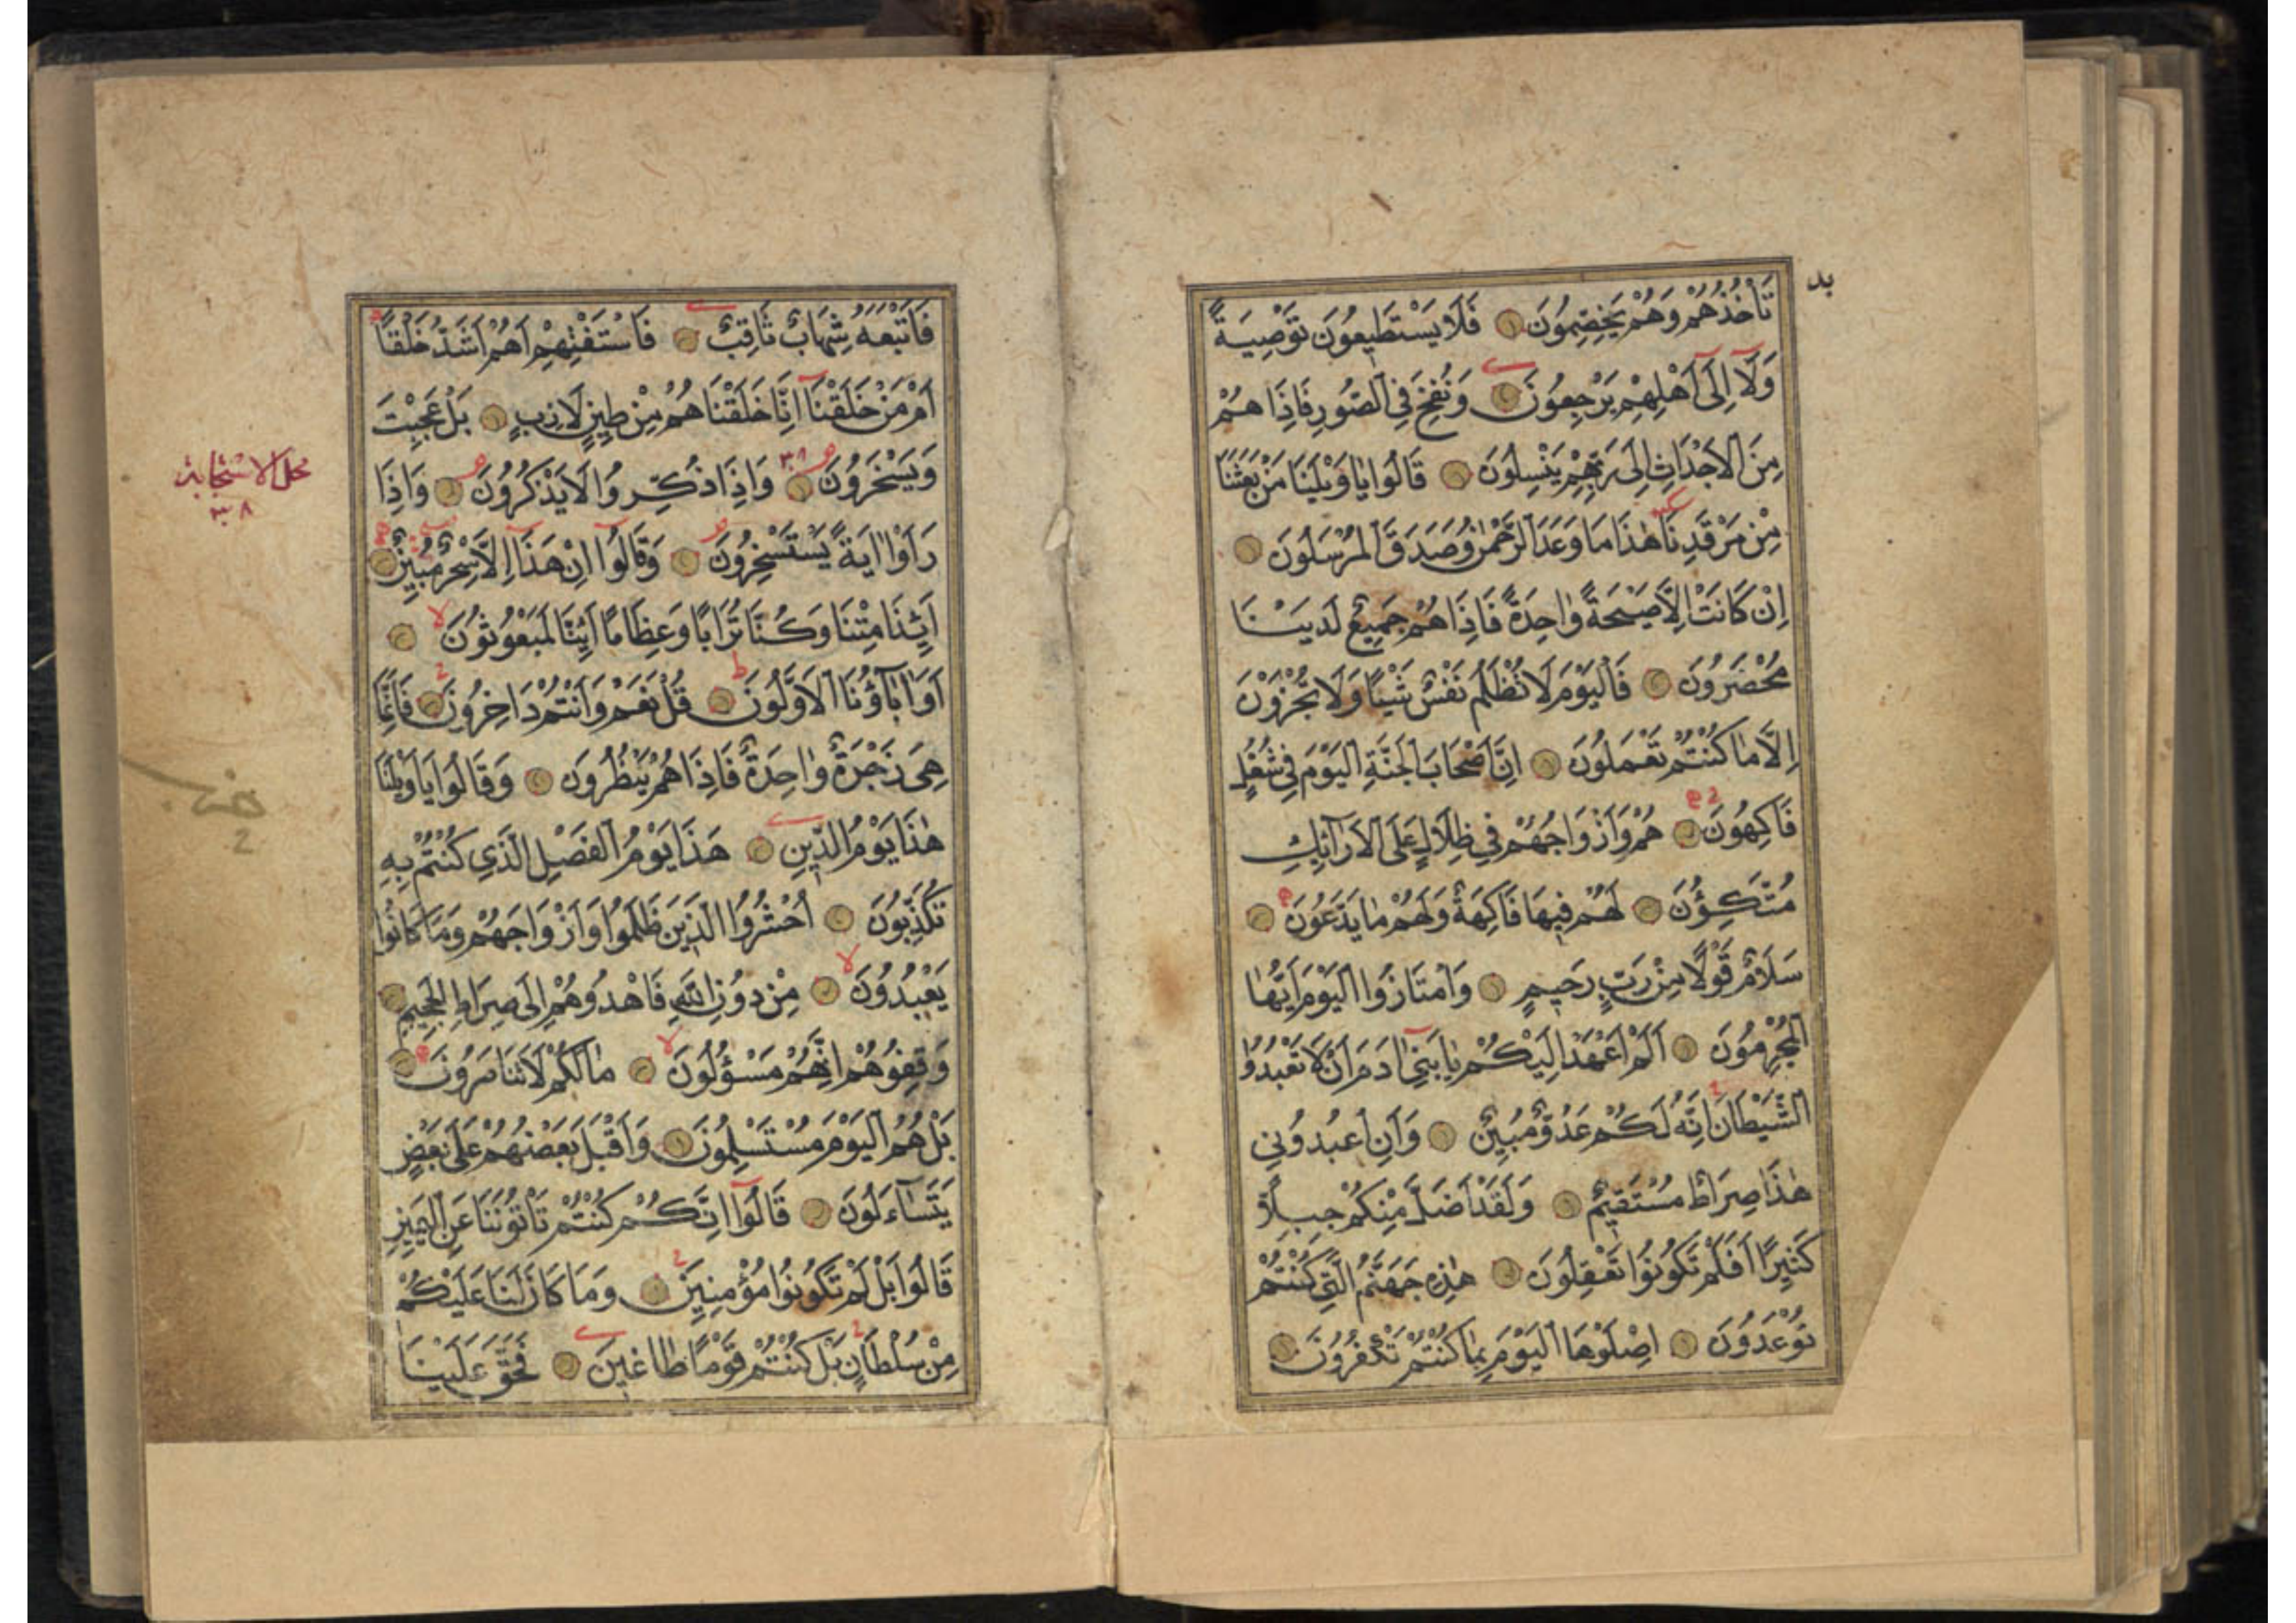 بد
تَأْخُذُهُمْ وَهُمْ يَخِصِّمُونَ فَلَا يَسْتَطِيعُونَ تَوْصِيَةً
وَلَآ اِلَىٰٓ اَهْلِهِمْ يَرْجِعُونَ وَنُفِخَ فِي الصُّورِ فَاِذَا هُمْ
مِنَ الْاَجْدَاثِ اِلَىٰ رَبِّهِمْ يَنْسِلُونَ قَالُوا يَا وَيْلَنَا مَنْ بَعَثَنَا
مِنْ مَرْقَدِنَا هٰذَا مَا وَعَدَ الرَّحْمٰنُ وَصَدَقَ الْمُرْسَلُونَ
اِنْ كَانَتْ اِلَّا صَيْحَةً وَاحِدَةً فَاِذَا هُمْ جَمِيعٌ لَدَيْنَا
مُحْضَرُونَ فَالْيَوْمَ لَا تُظْلَمُ نَفْسٌ شَيْئًا وَلَا تُجْزَوْنَ
اِلَّا مَا كُنْتُمْ تَعْمَلُونَ اِنَّ اَصْحَابَ الْجَنَّةِ الْيَوْمَ فِي شُغُلٍ
فَاكِهُونَ هُمْ وَاَزْوَاجُهُمْ فِي ظِلَالٍ عَلَى الْاَرَآئِكِ
مُتَّكِؤُنَ لَهُمْ فِيهَا فَاكِهَةٌ وَلَهُمْ مَا يَدَّعُونَ
سَلَامٌ قَوْلًا مِنْ رَبٍّ رَحِيمٍ وَامْتَازُوا الْيَوْمَ اَيُّهَا
الْمُجْرِمُونَ اَلَمْ اَعْهَدْ اِلَيْكُمْ يَا بَنِي اٰدَمَ اَنْ لَا تَعْبُدُوا
الشَّيْطَانَ اِنَّهُ لَكُمْ عَدُوٌّ مُبِينٌ وَاَنِ اعْبُدُونِي
هٰذَا صِرَاطٌ مُسْتَقِيمٌ وَلَقَدْ اَضَلَّ مِنْكُمْ جِبِلًّا
كَثِيرًا اَفَلَمْ تَكُونُوا تَعْقِلُونَ هٰذِهِ جَهَنَّمُ الَّتِي كُنْتُمْ
تُوعَدُونَ اِصْلَوْهَا الْيَوْمَ بِمَا كُنْتُمْ تَكْفُرُونَ
فَاَتْبَعَهُ شِهَابٌ ثَاقِبٌ فَاسْتَفْتِهِمْ اَهُمْ اَشَدُّ خَلْقًا
اَمْ مَنْ خَلَقْنَا اِنَّا خَلَقْنَاهُمْ مِنْ طِينٍ لَازِبٍ بَلْ عَجِبْتَ
وَيَسْخَرُونَ وَاِذَا ذُكِّرُوا لَا يَذْكُرُونَ وَاِذَا
رَاَوْا اٰيَةً يَسْتَسْخِرُونَ وَقَالُوٓا اِنْ هَذَآ اِلَّا سِحْرٌ مُبِينٌ
اَئِذَا مِتْنَا وَكُنَّا تُرَابًا وَعِظَامًا اَئِنَّا لَمَبْعُوثُونَ
اَوَاٰبَآؤُنَا الْاَوَّلُونَ قُلْ نَعَمْ وَاَنْتُمْ دَاخِرُونَ فَاِنَّمَا
هِيَ زَجْرَةٌ وَاحِدَةٌ فَاِذَا هُمْ يَنْظُرُونَ وَقَالُوا يَا وَيْلَنَا
هٰذَا يَوْمُ الدِّينِ هَذَا يَوْمُ الْفَصْلِ الَّذِي كُنْتُمْ بِهِ
تُكَذِّبُونَ اُحْشُرُوا الَّذِينَ ظَلَمُوا وَاَزْوَاجَهُمْ وَمَا كَانُوا
يَعْبُدُونَ مِنْ دُونِ اللّٰهِ فَاهْدُوهُمْ اِلَى صِرَاطِ الْجَحِيمِ
وَقِفُوهُمْ اِنَّهُمْ مَسْؤُلُونَ مَا لَكُمْ لَا تَنَاصَرُونَ
بَلْ هُمُ الْيَوْمَ مُسْتَسْلِمُونَ وَاَقْبَلَ بَعْضُهُمْ عَلَى بَعْضٍ
يَتَسَآءَلُونَ قَالُوٓا اِنَّكُمْ كُنْتُمْ تَاْتُونَنَا عَنِ الْيَمِينِ
قَالُوا بَلْ لَمْ تَكُونُوا مُؤْمِنِينَ وَمَا كَانَ لَنَا عَلَيْكُمْ
مِنْ سُلْطَانٍ بَلْ كُنْتُمْ قَوْمًا طَاغِينَ فَحَقَّ عَلَيْنَا
محل الاستجابة
٣٨